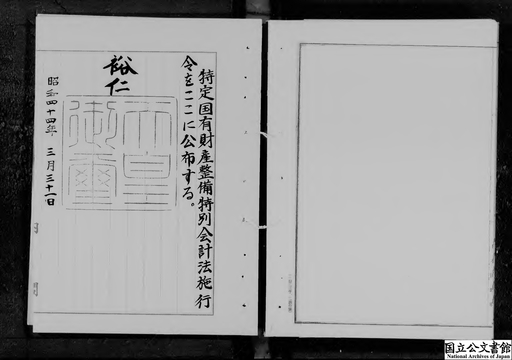 特定国有財産整備特別会計法施行
令をここに公布する。
裕仁
天皇
御璽
昭和四十四年 三月三十一日
国立公文書館
National Archives of Japan